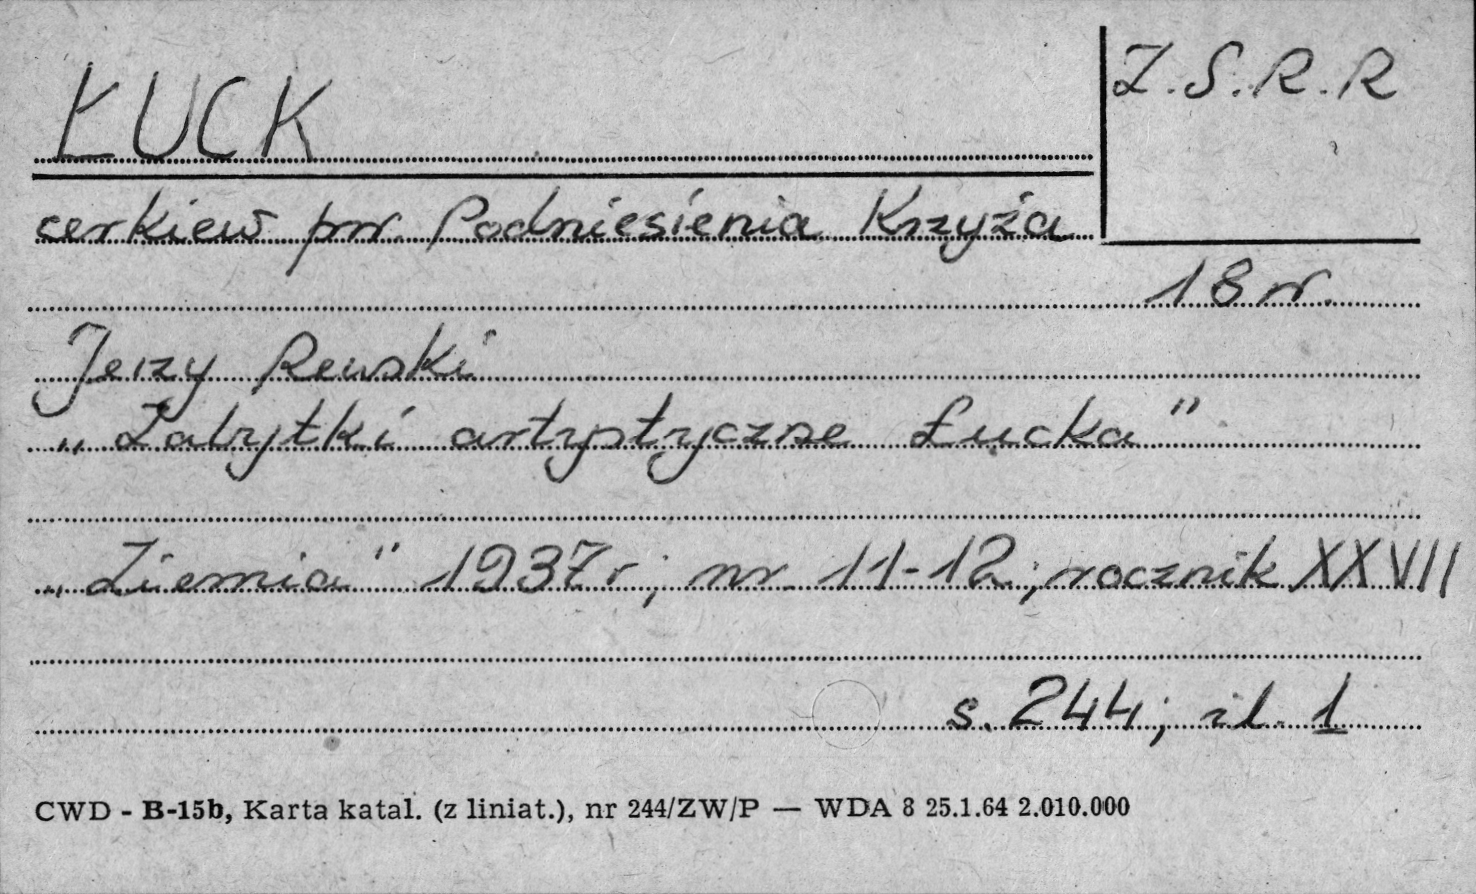 ŁUCK
Z.S.R.R
cerkiew pw. Podniesienia Krzyża
18 w.
Jerzy Rewski
„Zabytki artystyczne Łucka"
„Ziemia" 1937 r; nr. 11-12; rocznik XXVII
s. 244; il. 1
CWD - B-15b, Karta katal. (z liniat.), nr 244/ZW/P — WDA 8 25.1.64 2.010.000